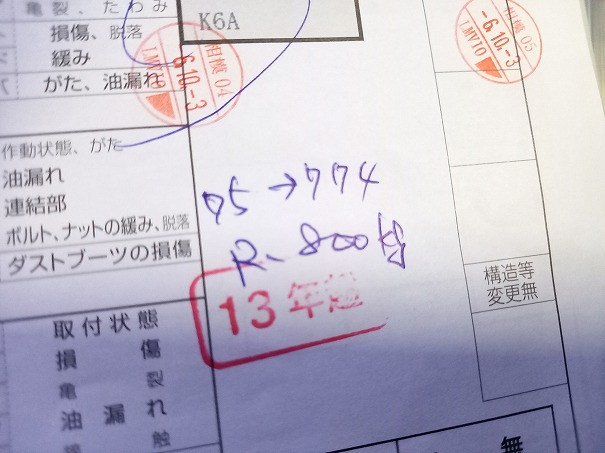 亀裂、たわみ
損傷、脱落
緩み
がた、油漏れ
K6A
相模 04
-6.10.-3
LMV10
相模 05
-6.10.-3
LMV10
作動状態、がた
油漏れ
連結部
ボルト、ナットの緩み、脱落
ダストブーツの損傷
75→774
R-800kg
13年超
構造等
変更無
取付状態
損傷
亀裂
油漏れ
無